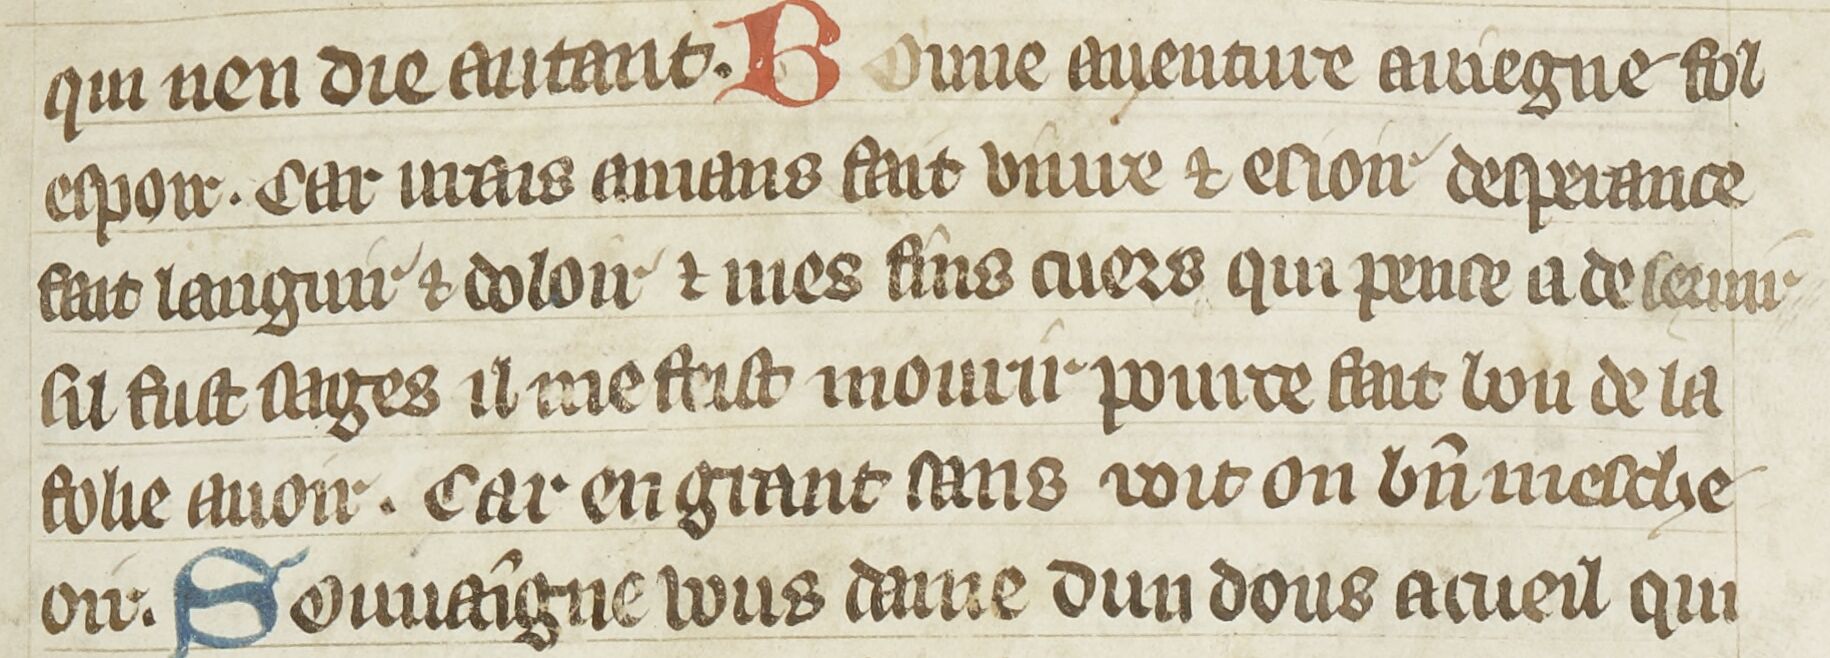 qui nen die autant. Bonne auenture auiegne fol
espoir. Car urais amans fait uiure & esioir desperance
fait languir & doloir & mes fins cuers qui pence a de seruir
sil fust sages il me feist mourir pource fait bon de la
folie auoir. Car en grant sans uoit on bn̄ mesche
oir. Souuaigne uous dame dun dous acueil qui